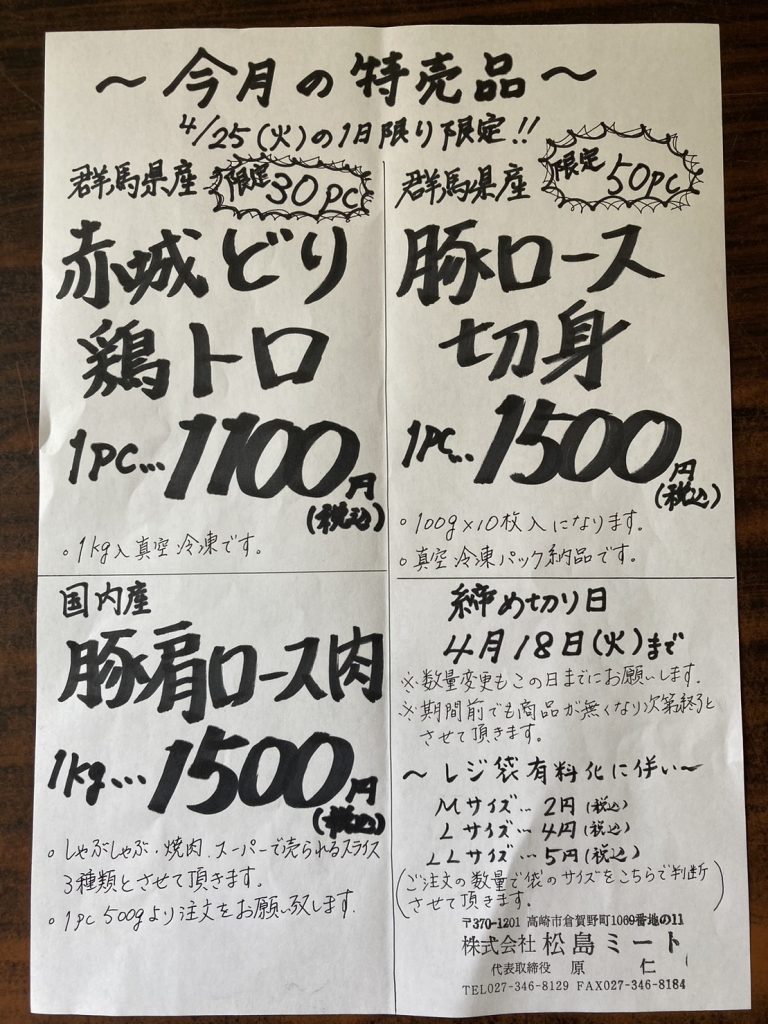 ～今月の特売品～
4/25(火)の1日限り限定!!
群馬県産
限定30pc
赤城どり
鶏トロ
1pc…1100円
(税込)
。1kg入真空冷凍です。
群馬県産
限定50pc
豚ロース
切身
1pc…1500円
(税込)
。100g×10枚入になります。
。真空冷凍パック納品です。
国内産
豚肩ロース肉
1kg…1500円
(税込)
。しゃぶしゃぶ、焼肉、スーパーで売られるスライス
3種類とさせて頂きます。
。1pc500gより注文をお願い致します。
締め切り日
4月18日(火)まで
※数量変更もこの日までにお願いします。
※期間前でも商品が無くなり次第終了と
させて頂きます。
～レジ袋有料化に伴い～
Mサイズ…2円(税込)
Lサイズ…4円(税込)
LLサイズ…5円(税込)
(ご注文の数量で袋のサイズをこちらで判断
させて頂きます。)
〒370-1201 高崎市倉賀野町1069番地の11
株式会社 松島ミート
代表取締役 原 仁
TEL027-346-8129 FAX027-346-8184